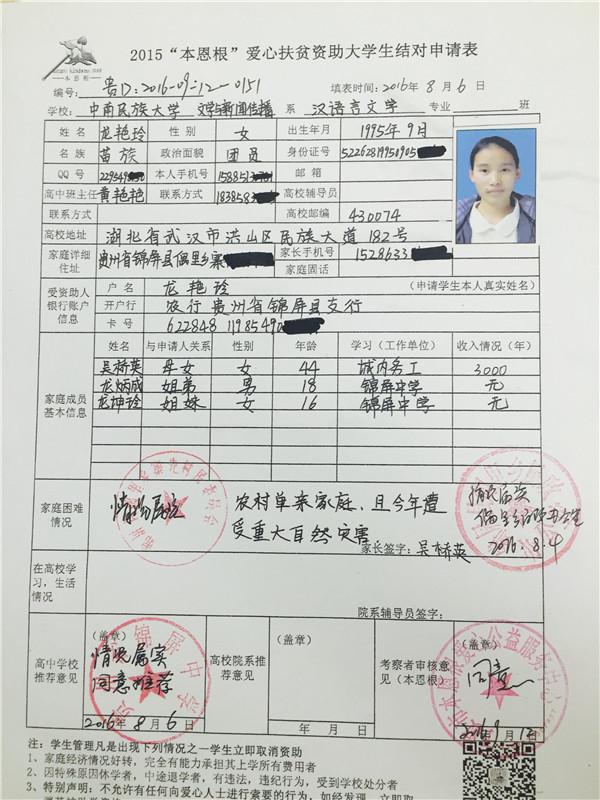 本恩根
2015“本恩根”爱心扶贫资助大学生结对申请表
编号: 贵D:2016-09-12-0151 填表时间: 2016年8月6日
学校: 中南民族大学 文学与新闻传播 系 汉语言文学 专业 班
姓名 龙艳玲 性别 女 出生年月 1995年9月
名族 苗族 政治面貌 团员 身份证号 52262819950905
QQ号 229549 本人手机号 1588513 邮箱
高中班主任 黄艳艳 联系方式 183858 高校辅导员
联系方式 高校邮编 430074
高校地址 湖北省武汉市洪山区民族大道182号
家庭详细住址 贵州省锦屏县偶里乡寨 家长手机号 1528633
家庭固话
受资助人银行账户信息 户名 龙艳玲 (申请学生本人真实姓名)
开户行 农行贵州省锦屏县支行
卡号 622848 11985490
家庭成员基本信息 姓名 与申请人关系 性别 年龄 学习(工作单位) 收入情况(年)
吴桥英 母女 女 44 城内务工 3000
龙炳成 姐弟 男 18 锦屏中学 元
龙坤玲 姐妹 女 16 锦屏中学 元
家庭困难情况 情况属实 农村单亲家庭,且今年遭
受重大自然灾害
家长签字: 吴桥英
情况属实
2016.8.4
在高校学习,生活情况
院系辅导员签字:
高中学校推荐意见 (盖章) 高校院系推荐意见 (盖章) 考察者审核意见(本恩根) (盖章)
情况属实 同意
同意推荐
2016年8月6日 年 月 日
锦屏中学
注:学生管理凡是出现下列情况之一学生立即取消资助
1、家庭经济情况好转,完全有能力承担其上学所有费用者
2、因特殊原因休学者,中途退学者,有违法,违纪行为,受到学校处分者
3、特别声明:不允许有任何向爱心人士进行索要的行为,如经发现,立即取